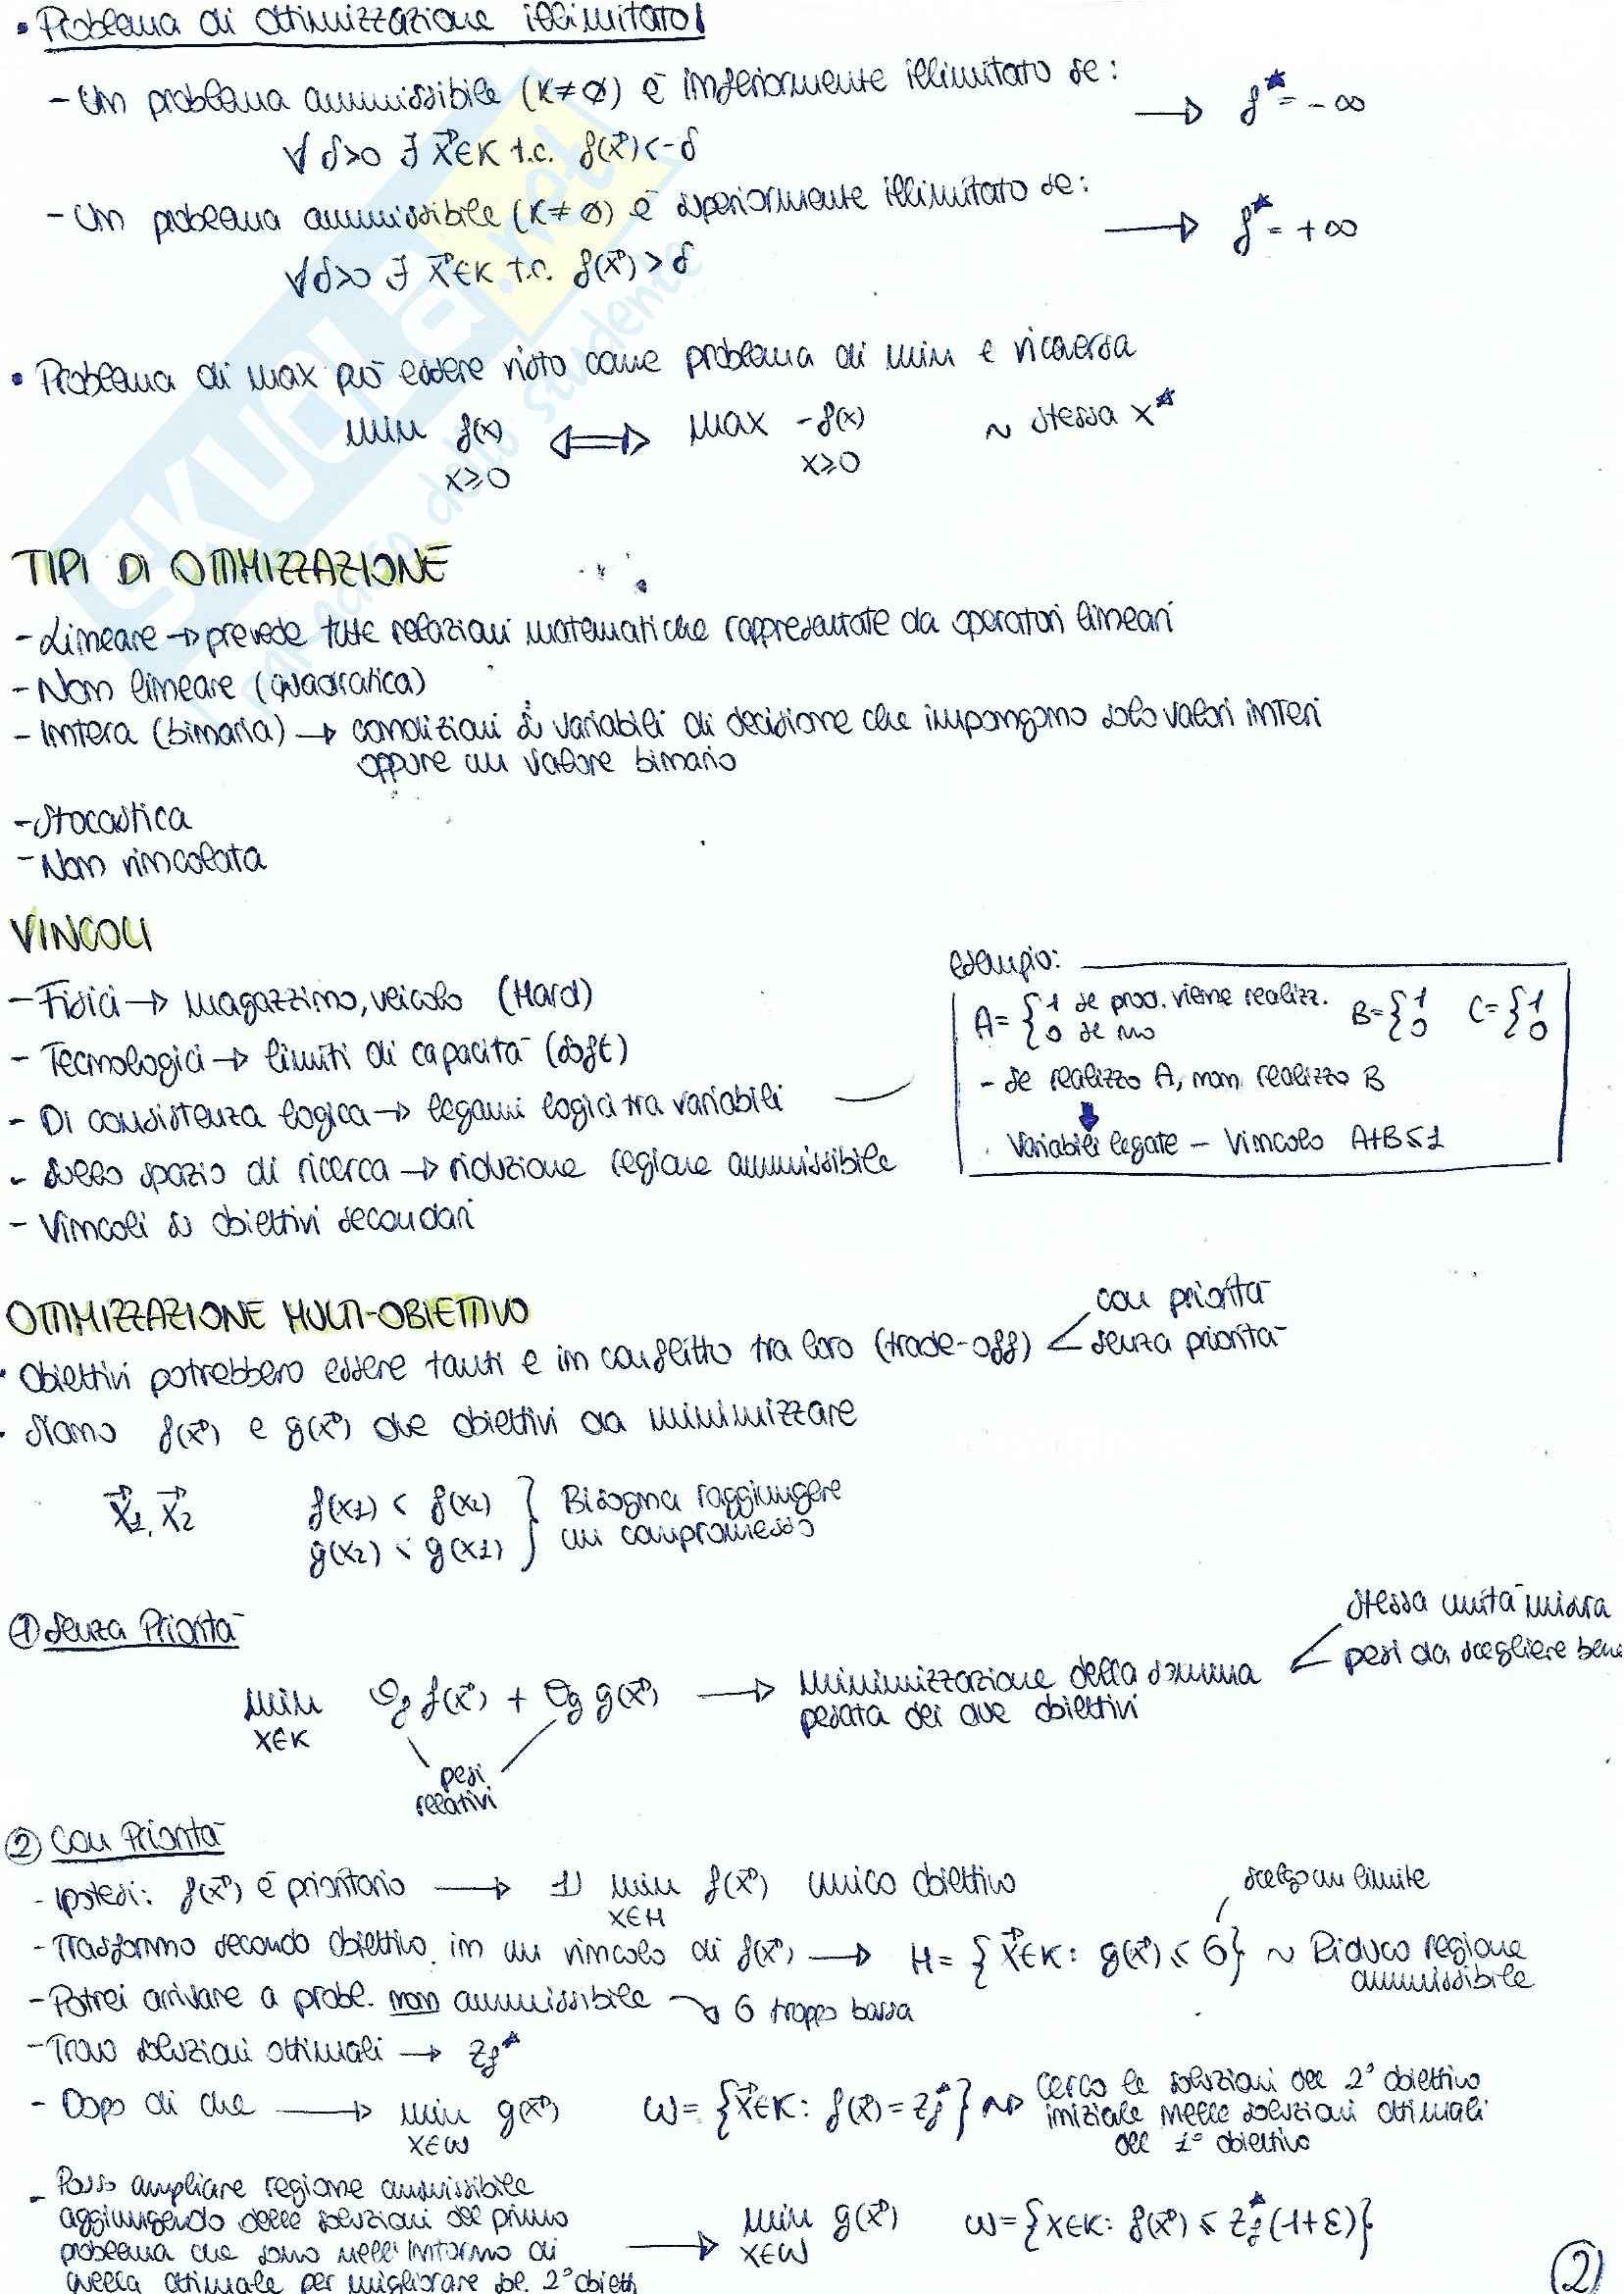 • Problema di ottimizzazione illimitato
- Un problema ammissibile (K≠∅) è inferiormente illimitato se:
→ f* = -∞
∀ δ>0 ∃ x⃗∈K t.c. f(x⃗)<-δ
- Un problema ammissibile (K≠∅) è superiormente illimitato se:
→ f* = +∞
∀δ>0 ∃ x⃗∈K t.c. f(x⃗)>δ
• Problema di max può essere visto come problema di min e viceversa
min f(x) ⟺ max -f(x) ~ stessa x*
x≥0 x≥0
TIPI DI OTTIMIZZAZIONE
- Lineare → prevede tutte relazioni matematiche rappresentate da operatori lineari
- Non lineare (quadratica)
- Intera (binaria) → condizioni su variabili di decisione che impongono solo valori interi
oppure un valore binario
- Stocastica
- Non vincolata
VINCOLI
- Fisici → magazzino, veicolo (Hard)
- Tecnologici → limiti di capacità (soft)
- Di consistenza logica → legami logici tra variabili
- Sullo spazio di ricerca → riduzione regione ammissibile
- Vincoli su obiettivi secondari
esempio:
A= { 1 se prod. viene realizz. B= { 1 C= { 1
0 se no 0 0
- Se realizzo A, non realizzo B
↓
Variabili legate - Vincolo A+B≤1
OTTIMIZZAZIONE MULTI-OBIETTIVO
• Obiettivi potrebbero essere tanti e in conflitto tra loro (trade-off)
con priorità
senza priorità
• Siano f(x⃗) e g(x⃗) due obiettivi da minimizzare
x⃗1, x⃗2 f(x1) < f(x2) } Bisogna raggiungere
g(x2) < g(x1) } un compromesso
① Senza Priorità
min Θf f(x⃗) + Θg g(x⃗) → minimizzazione della somma
x∈K pesata dei due obiettivi
stessa unità misura
pesi da scegliere bene
pesi
relativi
② Con Priorità
- Ipotesi: f(x⃗) è prioritario → 1) min f(x⃗) unico obiettivo
x∈H
scelgo un limite
- Trasformo secondo obiettivo in un vincolo di f(x⃗) → H= {x⃗∈K: g(x⃗) ≤ G} ~ Riduco regione
ammissibile
- Potrei arrivare a probl. non ammissibile ↘ G troppo bassa
- Trovo soluzioni ottimali → Zf*
- Dopo di che → min g(x⃗) W= {x⃗∈K: f(x⃗) = Zf*} ~> cerco le soluzioni del 2° obiettivo
x∈W iniziale nelle soluzioni ottimali
del 1° obiettivo
- Posso ampliare regione ammissibile
aggiungendo delle soluzioni del primo
problema che sono nell'intorno di
quella ottimale per migliorare sol. 2° obiett.
→ min g(x⃗) W= {x∈K: f(x⃗) ≤ Zf*(1+ε)}
x∈W
②
SKUOLA.net